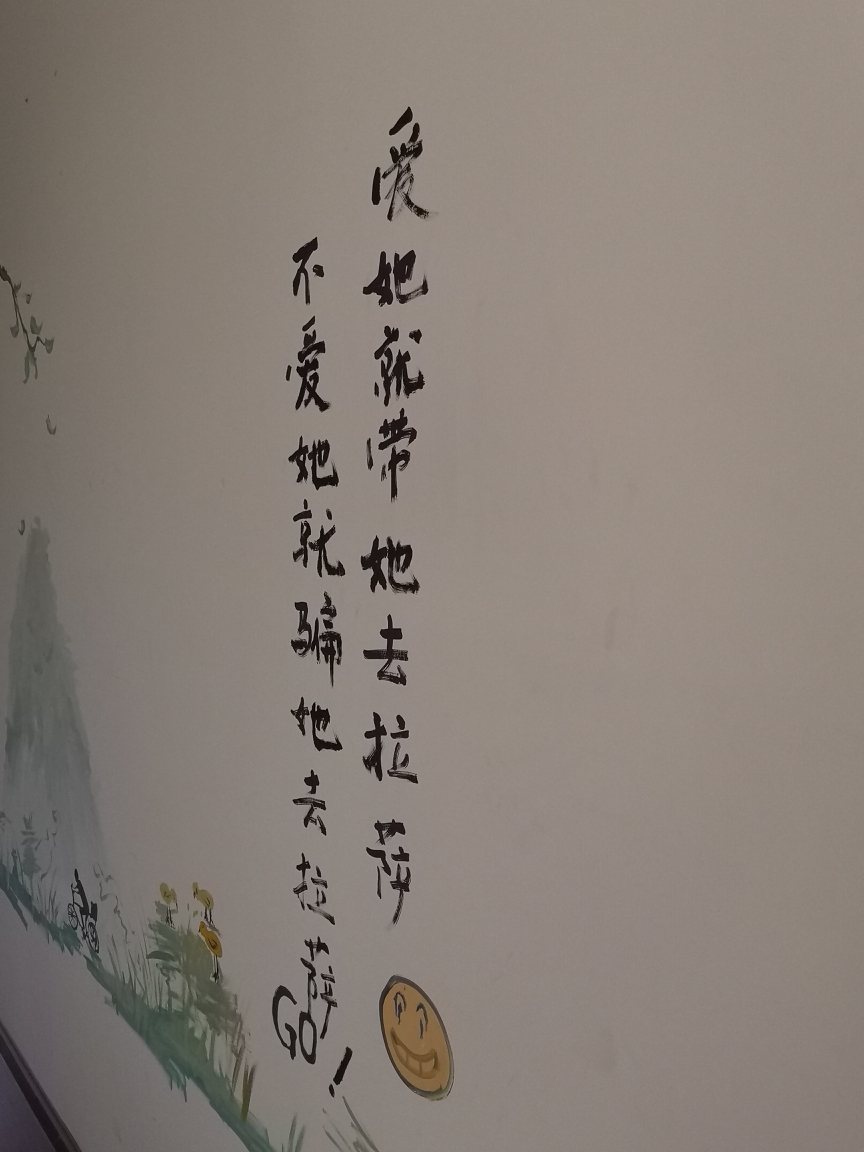 爱她就带她去拉萨
不爱她就骗她去拉萨
GO!